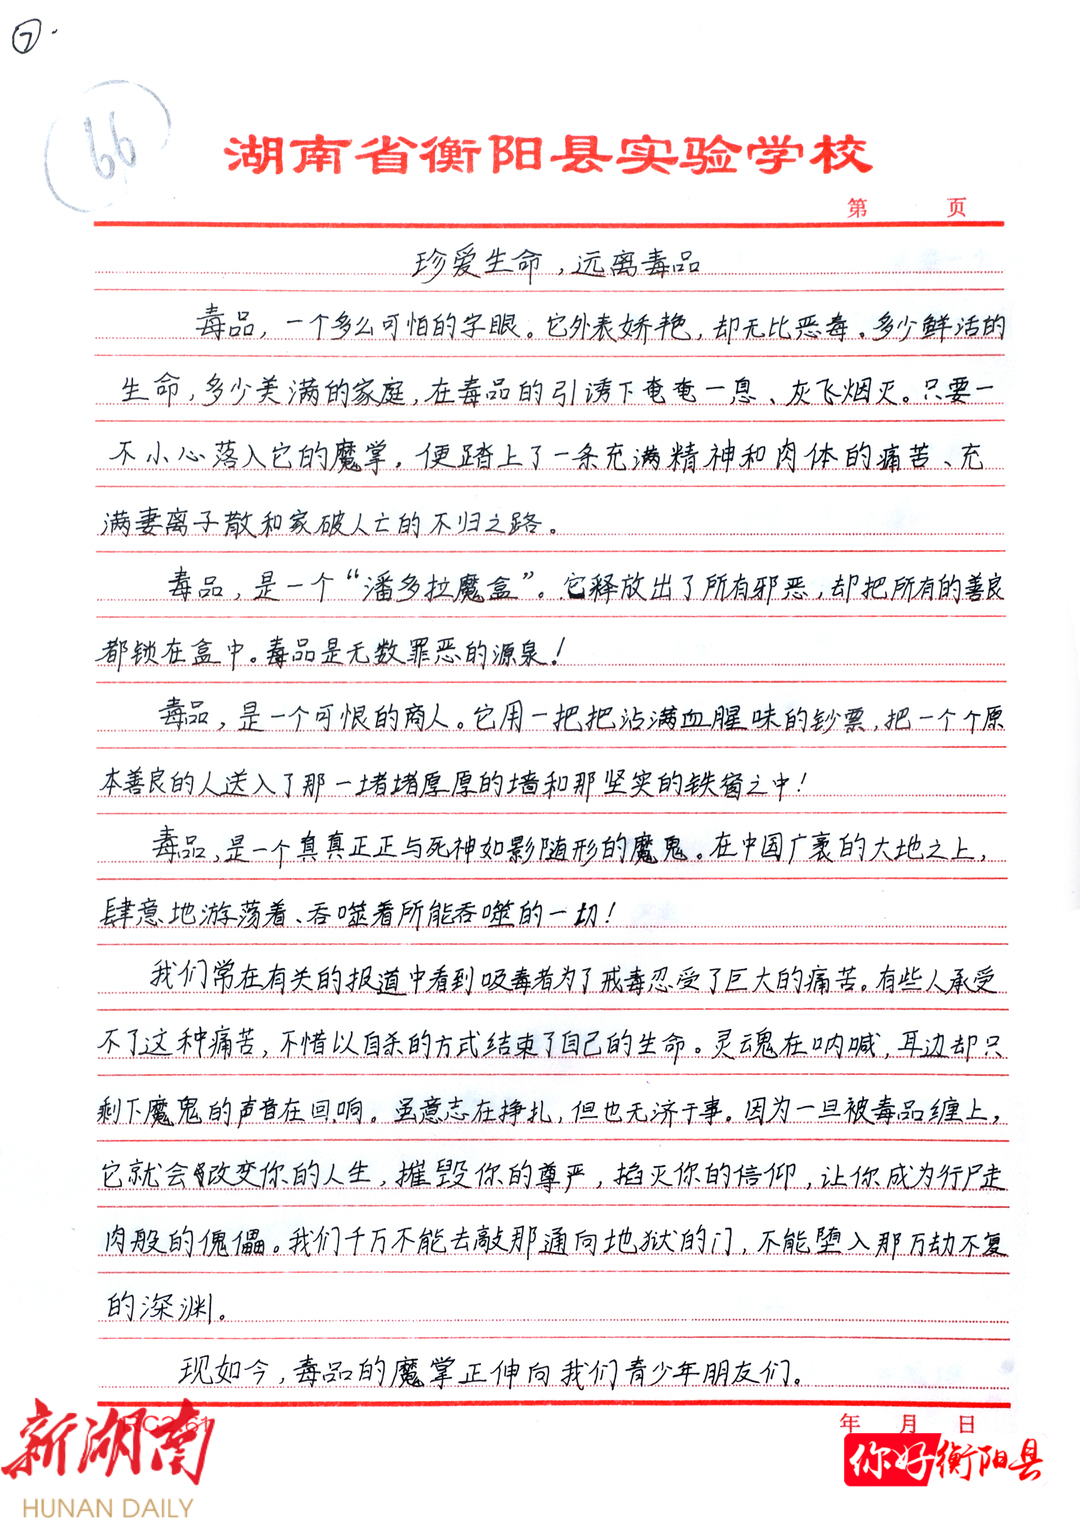 7
66
湖南省衡阳县实验学校
第 页
珍爱生命，远离毒品
毒品，一个多么可怕的字眼。它外表娇艳，却无比恶毒。多少鲜活的
生命，多少美满的家庭，在毒品的引诱下奄奄一息、灰飞烟灭。只要一
不小心落入它的魔掌，便踏上了一条充满精神和肉体的痛苦、充
满妻离子散和家破人亡的不归之路。
毒品，是一个“潘多拉魔盒”。它释放出了所有邪恶，却把所有的善良
都锁在盒中。毒品是无数罪恶的源泉！
毒品，是一个可恨的商人。它用一把把沾满血腥味的钞票，把一个个原
本善良的人送入了那一堵堵厚厚的墙和那坚实的铁窗之中！
毒品，是一个真真正正与死神如影随形的魔鬼。在中国广袤的大地之上，
肆意地游荡着、吞噬着所能吞噬的一切！
我们常在有关的报道中看到吸毒者为了戒毒忍受了巨大的痛苦。有些人承受
不了这种痛苦，不惜以自杀的方式结束了自己的生命。灵魂在呐喊，耳边却只
剩下魔鬼的声音在回响。虽意志在挣扎，但也无济于事。因为一旦被毒品缠上，
它就会改变你的人生，摧毁你的尊严，掐灭你的信仰，让你成为行尸走
肉般的傀儡。我们千万不能去敲那通向地狱的门，不能堕入那万劫不复
的深渊。
现如今，毒品的魔掌正伸向我们青少年朋友们。
年 月 日
新湖南
HUNAN DAILY
你好衡阳县